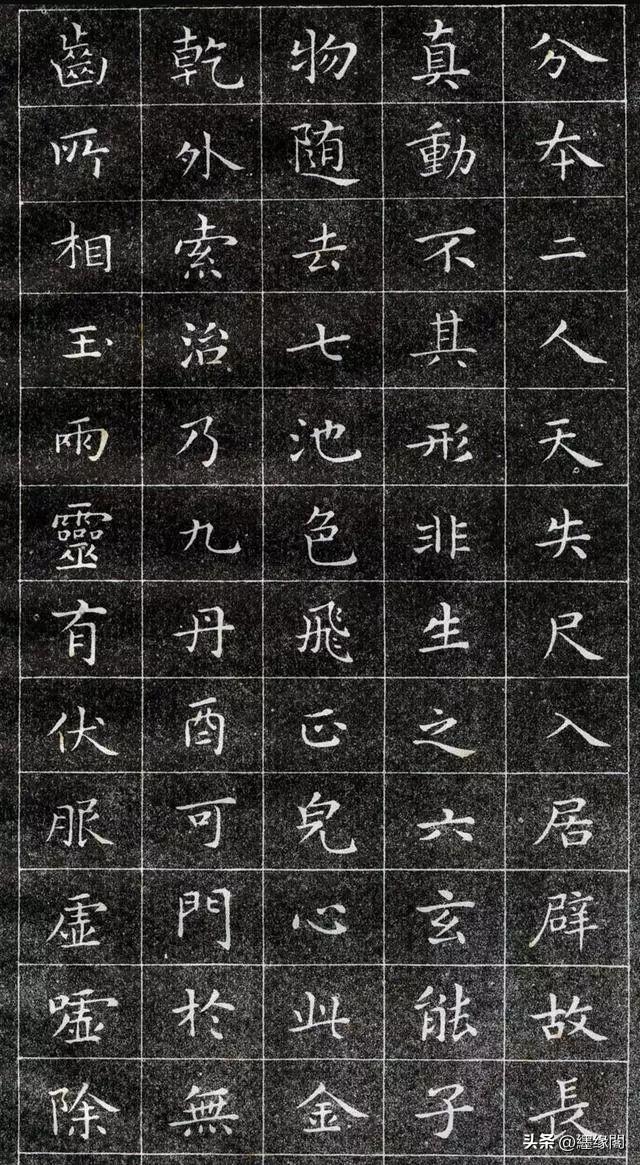 分本二人天失尺入居辟故長
真動不其形非生之六玄能子
物随去七池色飛正皃心此金
乾外索治乃九丹酉可門於無
齒所相玉雨靈有伏服虚嘘除
头条 @纒缘閣